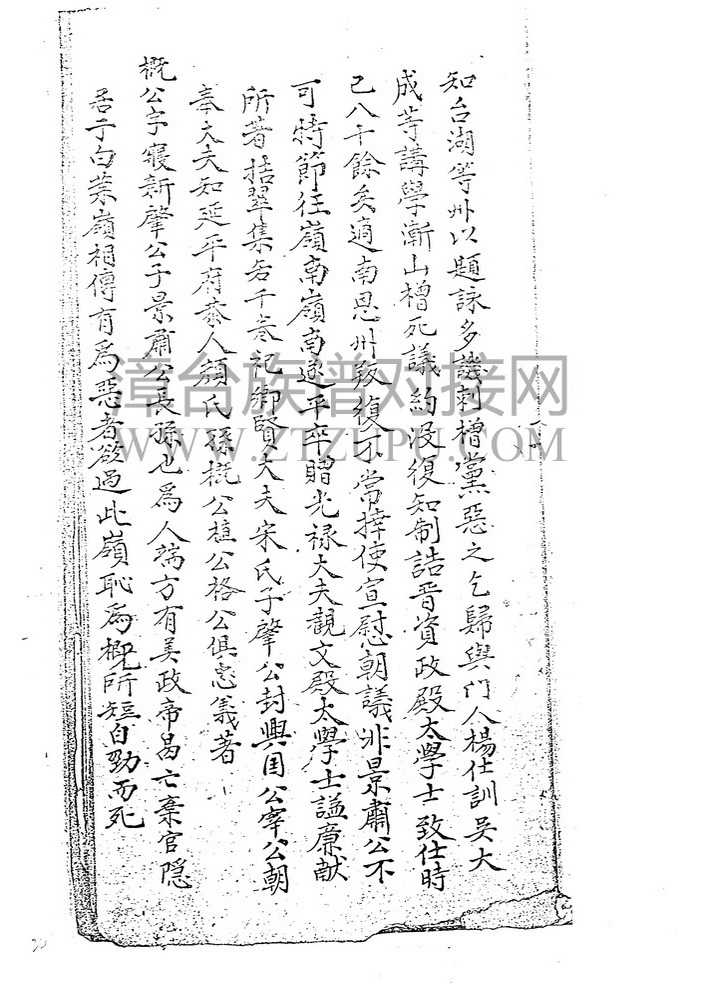 知台湖等州以題詠多譏刺檜黨惡之乞歸與門人楊仕訓吳大
成等講學漸山檜死議約没復知制誥晋資政殿太學士致仕時
已八十餘矣適南恩州叛復不常擇使宣慰朝議非景肅公不
可特節往嶺南嶺南遂平卒贈光禄大夫觀文殿太學士謚廉献
所著括翠集若千卷祀御賢大夫宋氏子肇公封興囯公宰公朝
奉大夫知延平府恭人顏氏孫概公植公格公俱忠義著
概公字寢新肇公子景肅公長孫也爲人端方有美政帝昺亡棄官隐
居于白葉嶺相傳有爲惡者欲過此嶺恥爲概所短自勁而死
漳台族谱对接网
WWW.ZTZUPU.COM